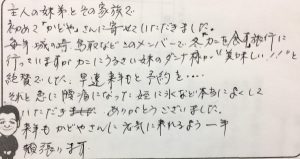 主人の妹弟とその家族で
初めて「かどや」さんに寄せていただきました。
毎年城の崎、鳥取などとのメンバーで、冬カニを食す旅行に
行っていますがカニにうるさい妹のダンナ様が"美味しい!!"と
絶賛でした。早速来年もと予約を…
それと急に腰痛になった姪に氷など本当によくして
いただき ありがとうございました。
来年もかどやさんに元気に来れるよう一年
頑張ります